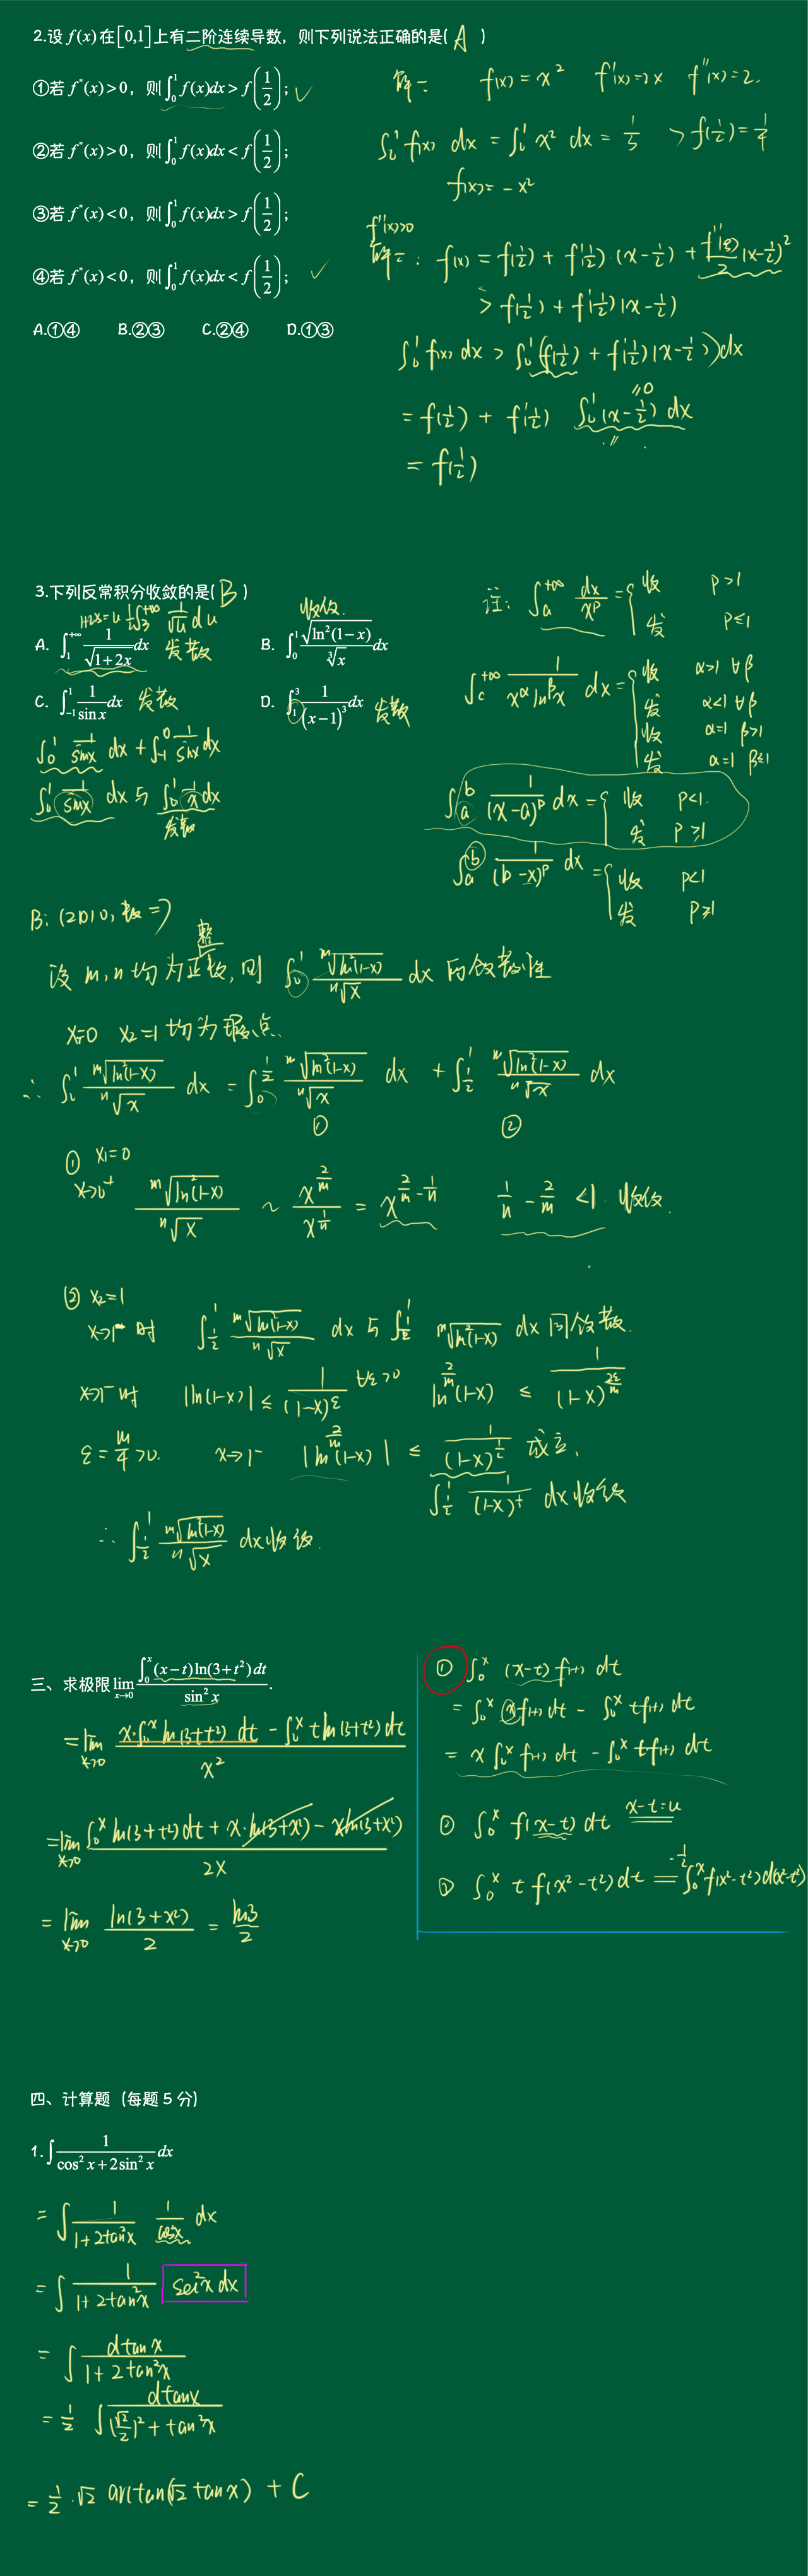 2.设 f(x) 在 [0,1] 上有二阶连续导数，则下列说法正确的是( A )
①若 f''(x)>0，则∫₀¹ f(x)dx > f(1/2)； ✓
②若 f''(x)>0，则∫₀¹ f(x)dx < f(1/2)；
③若 f''(x)<0，则∫₀¹ f(x)dx > f(1/2)；
④若 f''(x)<0，则∫₀¹ f(x)dx < f(1/2)； ✓
A.①④ B.②③ C.②④ D.①③
f(x) = x² f'(x)=2x f''(x)=2.
∫₀¹ f(x) dx = ∫₀¹ x² dx = 1/3 > f(1/2) = 1/4
f(x) = -x²
f''(x)>0
解二: f(x) = f(1/2) + f'(1/2)·(x-1/2) + f''(ξ)/2 (x-1/2)²
> f(1/2) + f'(1/2)(x-1/2)
∫₀¹ f(x) dx > ∫₀¹ (f(1/2) + f'(1/2)(x-1/2)) dx
= f(1/2) + f'(1/2) ∫₀¹ (x-1/2) dx
= f(1/2)
3.下列反常积分收敛的是( B )
1+2x=u 1/2 ∫₃^{+∞} 1/√u du
A. ∫₁^{+∞} 1/√(1+2x) dx 发散
收敛.
B. ∫₀¹ √(ln²(1-x))/∛x dx
C. ∫₋₁¹ 1/sin x dx 发散
D. ∫₁³ 1/(x-1)³ dx 发散
∫₀¹ 1/sinx dx + ∫₋₁⁰ 1/sinx dx
∫₀¹ 1/sinx dx 与 ∫₀¹ 1/x dx
发散
注: ∫ₐ^{+∞} dx/x^p = { 收 p>1
发 p≤1
∫_c^{+∞} 1/(x^α ln^β x) dx = { 收 α>1 ∀β
发 α<1 ∀β
收 α=1 β>1
发 α=1 β≤1
∫ₐᵇ 1/(x-a)^p dx = { 收 p<1.
发 p≥1
∫ₐᵇ 1/(b-x)^p dx = { 收 p<1
发 p≥1
B: (2010, 数一)
设 m,n 均为正整数, 则 ∫₀¹ ᵐ√(ln²(1-x))/ⁿ√x dx 的敛散性
x₁=0 x₂=1 均为瑕点.
∴ ∫₀¹ ᵐ√(ln²(1-x))/ⁿ√x dx = ∫₀^{1/2} ᵐ√(ln²(1-x))/ⁿ√x dx + ∫_{1/2}¹ ᵐ√(ln²(1-x))/ⁿ√x dx
① ②
① x₁=0
x→0⁺ ᵐ√(ln²(1-x))/ⁿ√x ~ x^{2/m}/x^{1/n} = x^{2/m-1/n} 1/n - 2/m <1 收敛.
② x₂=1
x→1⁻ 时 ∫_{1/2}¹ ᵐ√(ln²(1-x))/ⁿ√x dx 与 ∫_{1/2}¹ ᵐ√(ln²(1-x)) dx 同敛散.
x→1⁻ 时 |ln(1-x)| ≤ 1/(1-x)^ε ∀ε>0 ln^{2/m}(1-x) ≤ 1/(1-x)^{2ε/m}
ε = m/4 >0. x→1⁻ |ln^{2/m}(1-x)| ≤ 1/(1-x)^{1/2} 成立,
∫_{1/2}¹ 1/(1-x)^{1/2} dx 收敛
∴ ∫_{1/2}¹ ᵐ√(ln²(1-x))/ⁿ√x dx 收敛.
三、求极限 lim_{x→0} ∫₀ˣ (x-t)ln(3+t²)dt / sin²x.
= lim_{x→0} (x·∫₀ˣ ln(3+t²) dt - ∫₀ˣ t ln(3+t²) dt) / x²
= lim_{x→0} (∫₀ˣ ln(3+t²) dt + x·ln(3+x²) - x ln(3+x²)) / 2x
= lim_{x→0} ln(3+x²)/2 = ln3/2
① ∫₀ˣ (x-t) f(t) dt
= ∫₀ˣ x f(t) dt - ∫₀ˣ t f(t) dt
= x ∫₀ˣ f(t) dt - ∫₀ˣ t f(t) dt
② ∫₀ˣ f(x-t) dt x-t=u
③ ∫₀ˣ t f(x²-t²) dt = -1/2 ∫₀ˣ f(x²-t²) d(x²-t²)
四、计算题（每题 5 分）
1. ∫ 1/(cos²x+2sin²x) dx
= ∫ 1/(1+2tan²x) 1/cos²x dx
= ∫ 1/(1+2tan²x) sec²x dx
= ∫ dtanx/(1+2tan²x)
= 1/2 ∫ dtanx/((√2/2)² + tan²x)
= 1/2 ·√2 arctan(√2 tanx) + C